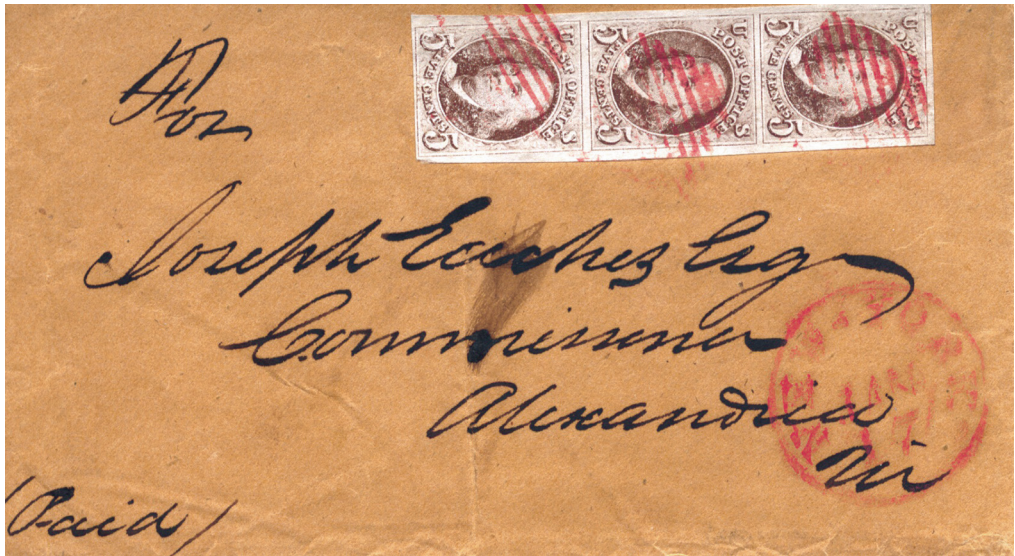 U S
POST OFFICE
5 FIVE CENTS 5
U S
POST OFFICE
5 FIVE CENTS 5
U S
POST OFFICE
5 FIVE CENTS 5
For
Joseph Esq
Commissioner
Alexandria
Va
(Paid)
NEW-YORK
JAN